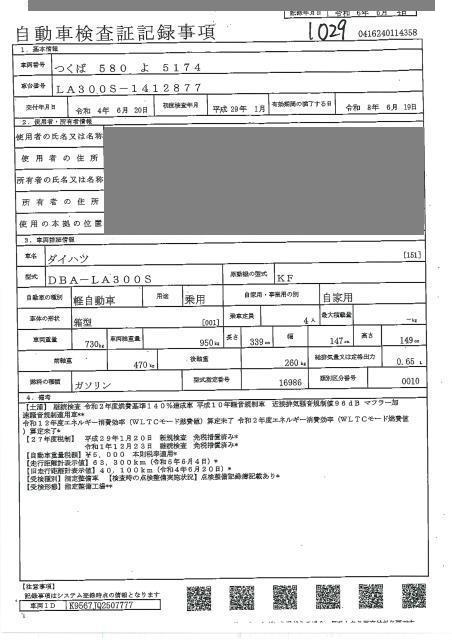 自動車検査証記録事項
1029
0416240114358
1. 基本情報
車両番号 つくば 580 よ 5174
車台番号 LA300S-1412877
交付年月日 令和 4年 6月 20日 初度検査年月 平成 29年 1月 有効期間の満了する日 令和 8年 6月 19日
2. 使用者・所有者情報
使用者の氏名又は名称
使用者の住所
所有者の氏名又は名称
所有者の住所
使用の本拠の位置
3. 車両詳細情報
車名 ダイハツ [151]
型式 DBA-LA300S 原動機の型式 KF
自動車の種別 軽自動車 用途 乗用 自家用・事業用の別 自家用
車体の形状 箱型 [001] 乗車定員 4人 最大積載量 -kg
車両重量 730kg 車両総重量 950kg 長さ 339cm 幅 147cm 高さ 149cm
前軸重 470kg 後軸重 260kg 総排気量又は定格出力 0.65 L
燃料の種類 ガソリン 型式指定番号 16986 類別区分番号 0010
4. 備考
【土浦】 継続検査 令和2年度燃費基準140%達成車 平成10年騒音規制車 近接排気騒音規制値96dB マフラー加
速騒音規制適用車**
令和12年度エネルギー消費効率(WLTCモード燃費値)算定未了 令和2年度エネルギー消費効率(WLTCモード燃費値
)算定未了*
【27年度税制】 平成29年1月20日 新規検査 免税措置済み*
令和1年12月23日 継続検査 免税措置済み*
【自動車重量税額】¥5,000 本則税率適用*
【走行距離計表示値】63,300km(令和6年6月4日)
【旧走行距離計表示値】40,100km(令和4年6月20日)*
【受検種別】指定整備車 【検査時の点検整備実施状況】点検整備記録簿記載あり*
【受検形態】指定整備工場**
【注意事項】
記録事項はシステム登録時点の情報となります
車両ID K9567JQ2507777